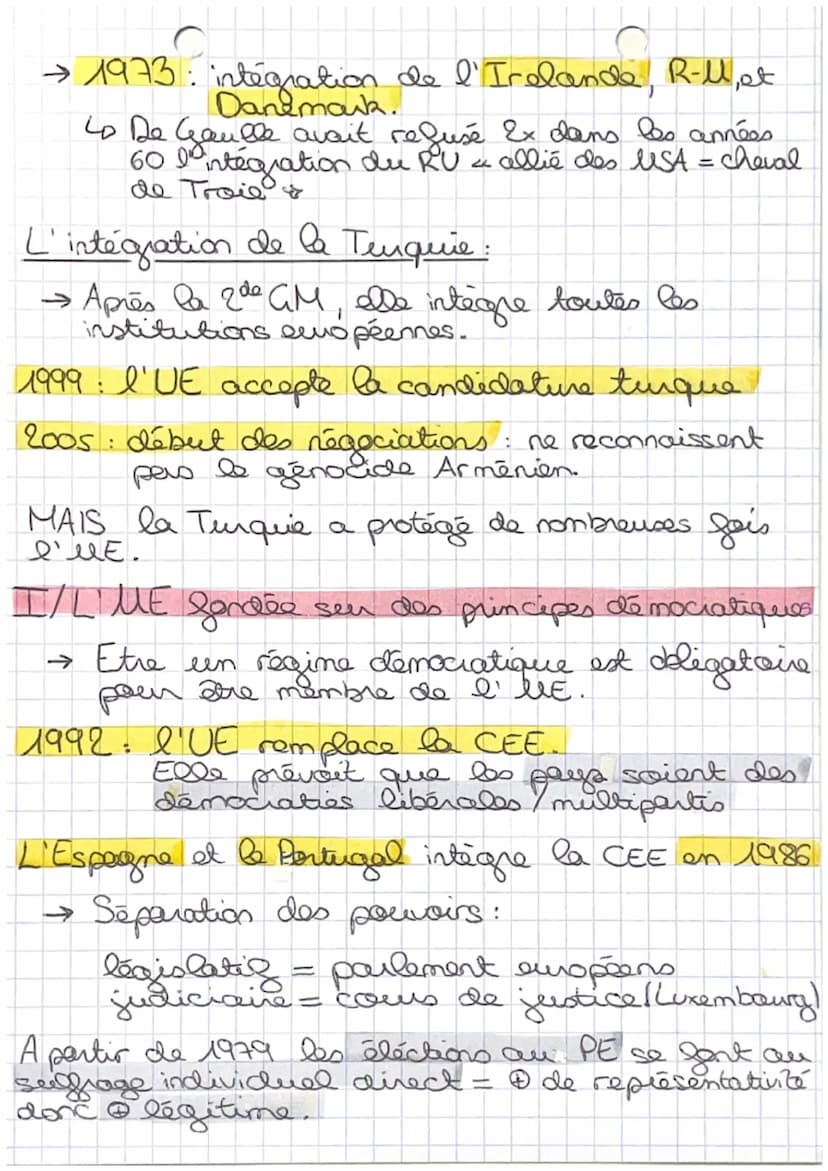 → 1973 : intégration de l'Irelande, R-U, et
Danemark.
↳ De Gaulle avait refusé 2x dans les années
60 l'intégration du RU « allié des USA = cheval
de Troie »
L'intégration de la Turquie :
→ Après la 2de GM, elle intègre toutes les
institutions européennes.
1999 : l'UE accepte la candidature turque
2005 : début des négociations : ne reconnaissent
pas le génocide Arménien.
MAIS la Turquie a protégé de nombreuses fois
l'UE.
I/L'UE fondée sur des principes démocratiques
→ Etre un régime démocratique est obligatoire
pour être membre de l'UE.
1992 : l'UE remplace la CEE.
Elle prévoit que les pays soient des
démocraties libérales / multipartis
L'Espagne et le Portugal intègre la CEE en 1986
→ Séparation des pouvoirs :
législatif = parlement européens
judiciaire = cours de justice (Luxembourg)
A partir de 1979 les éléctions au PE se font au
suffrage individuel direct = ⊕ de représentativité
donc ⊕ légitime.